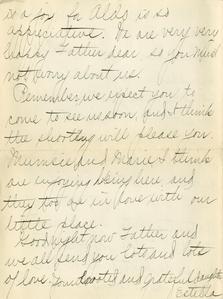 is a joy for Aldo is so
appreciative. We are very very
happy Father dear so you must
not worry about us.
Remember we expect you to
come to see us soon, and I think
the shortly will please you.
Mumsie and Marie I think
are enjoying being here, and
they too are in love with our
little place.
Goodnight now Father and
we all send you lots and lots
of love. Your devoted and grateful daught
Estella